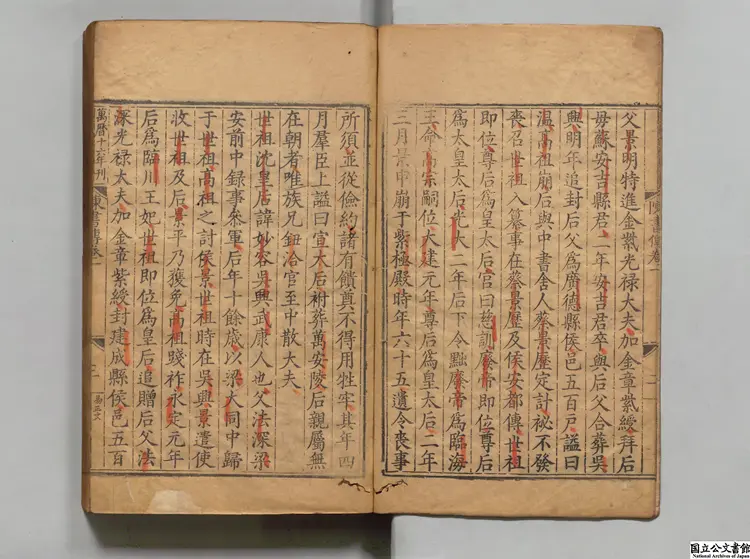 父景明特進金紫光禄大夫加金章紫綬拜后
母蘇安吉縣君二年安吉君卒與后父合葬吳
興明年追封后父爲廣德縣侯邑五百戸謚曰
温高祖崩后與中書舍人蔡景歷定計祕不發
喪召世祖入纂事在蔡景歷及侯安都傳世祖
即位尊后爲皇太后宮曰慈訓廢帝即位尊后
爲太皇太后光大二年后下令黜廢帝爲臨海
王命高宗嗣位大建元年尊后爲皇太后二年
三月景申崩于紫極殿時年六十五遺令喪事
陳書傳卷一
二
所須並從儉約諸有饋奠不得用牲牢其年四
月羣臣上謚曰宣太后祔葬萬安陵后親屬無
在朝者唯族兄鈕洽官至中散大夫
世祖沈皇后諱妙容吳興武康人也父法深梁
安前中録事參軍后年十餘歳以梁大同中歸
于世祖高祖之討侯景世祖時在吳興景遣使
收世祖及后景平乃獲免高祖踐祚永定元年
后爲臨川王妃世祖即位爲皇后追贈后父法
深光禄大夫加金章紫綬封建成縣侯邑五百
萬曆十六年刊
陳書傳卷一
国立公文書館
National Archives of Japan